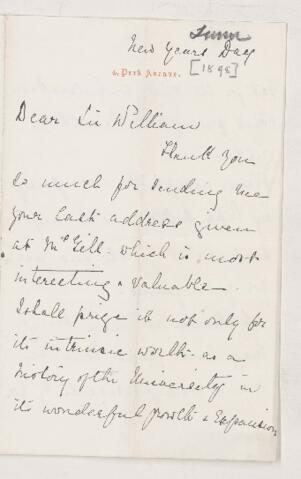 New Years Day
[1898]
Dear Sir William
Thank you
so much for sending me
your last address given
at McGill - which is most
interesting & valuable -
I shall prize it not only for
its intrinsic worth - as a
history of the University in
its wonderful growth & Expansion